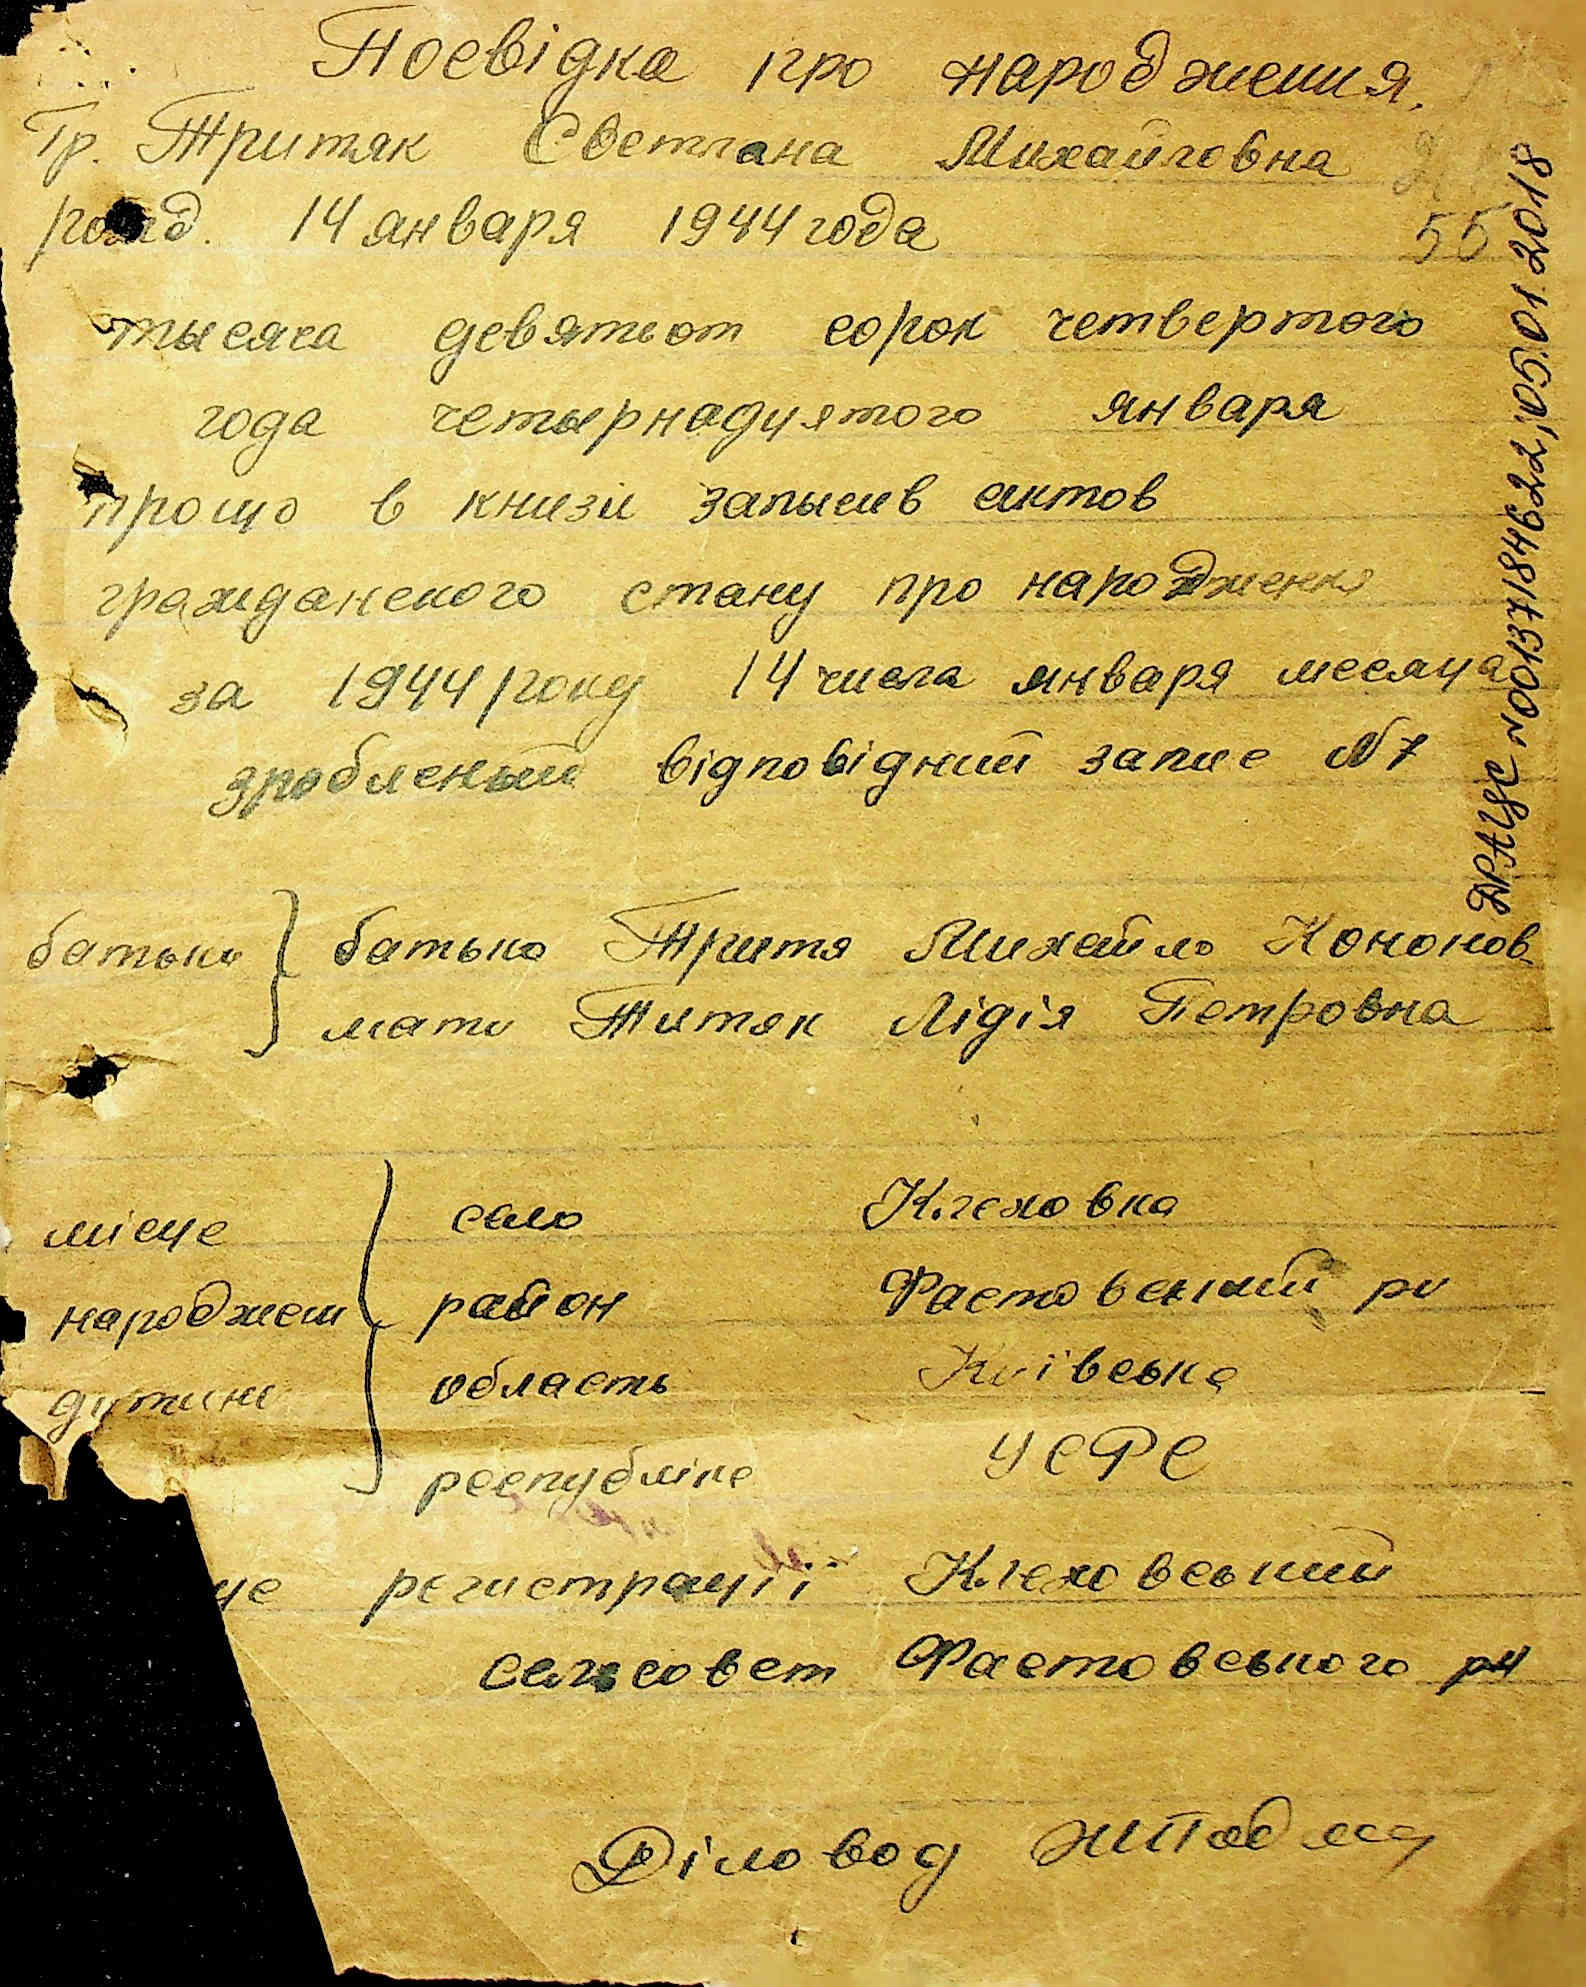 Посвідка про народження.
Гр. Тритяк Светлана Михайловна
рожд. 14 января 1944 года
55
тысяча девятьот сорок четвертого
года четырнадцятого января
прощо в книзи записив актов
гражданского стану про народження
за 1944 року 14 числа января месяца
зробленый відповідний запис №7
батьки } батько Тритя Михайло Кононов
мати Титяк Лідія Петровна
місце село Клеховка
народжен район Фастовський рн
дитини область Київська
республіка УСРС
це регистрації Клеховський
сельсовет Фастовського рн
Діловод
ДРАЦС №00137184622, 05.01.2018